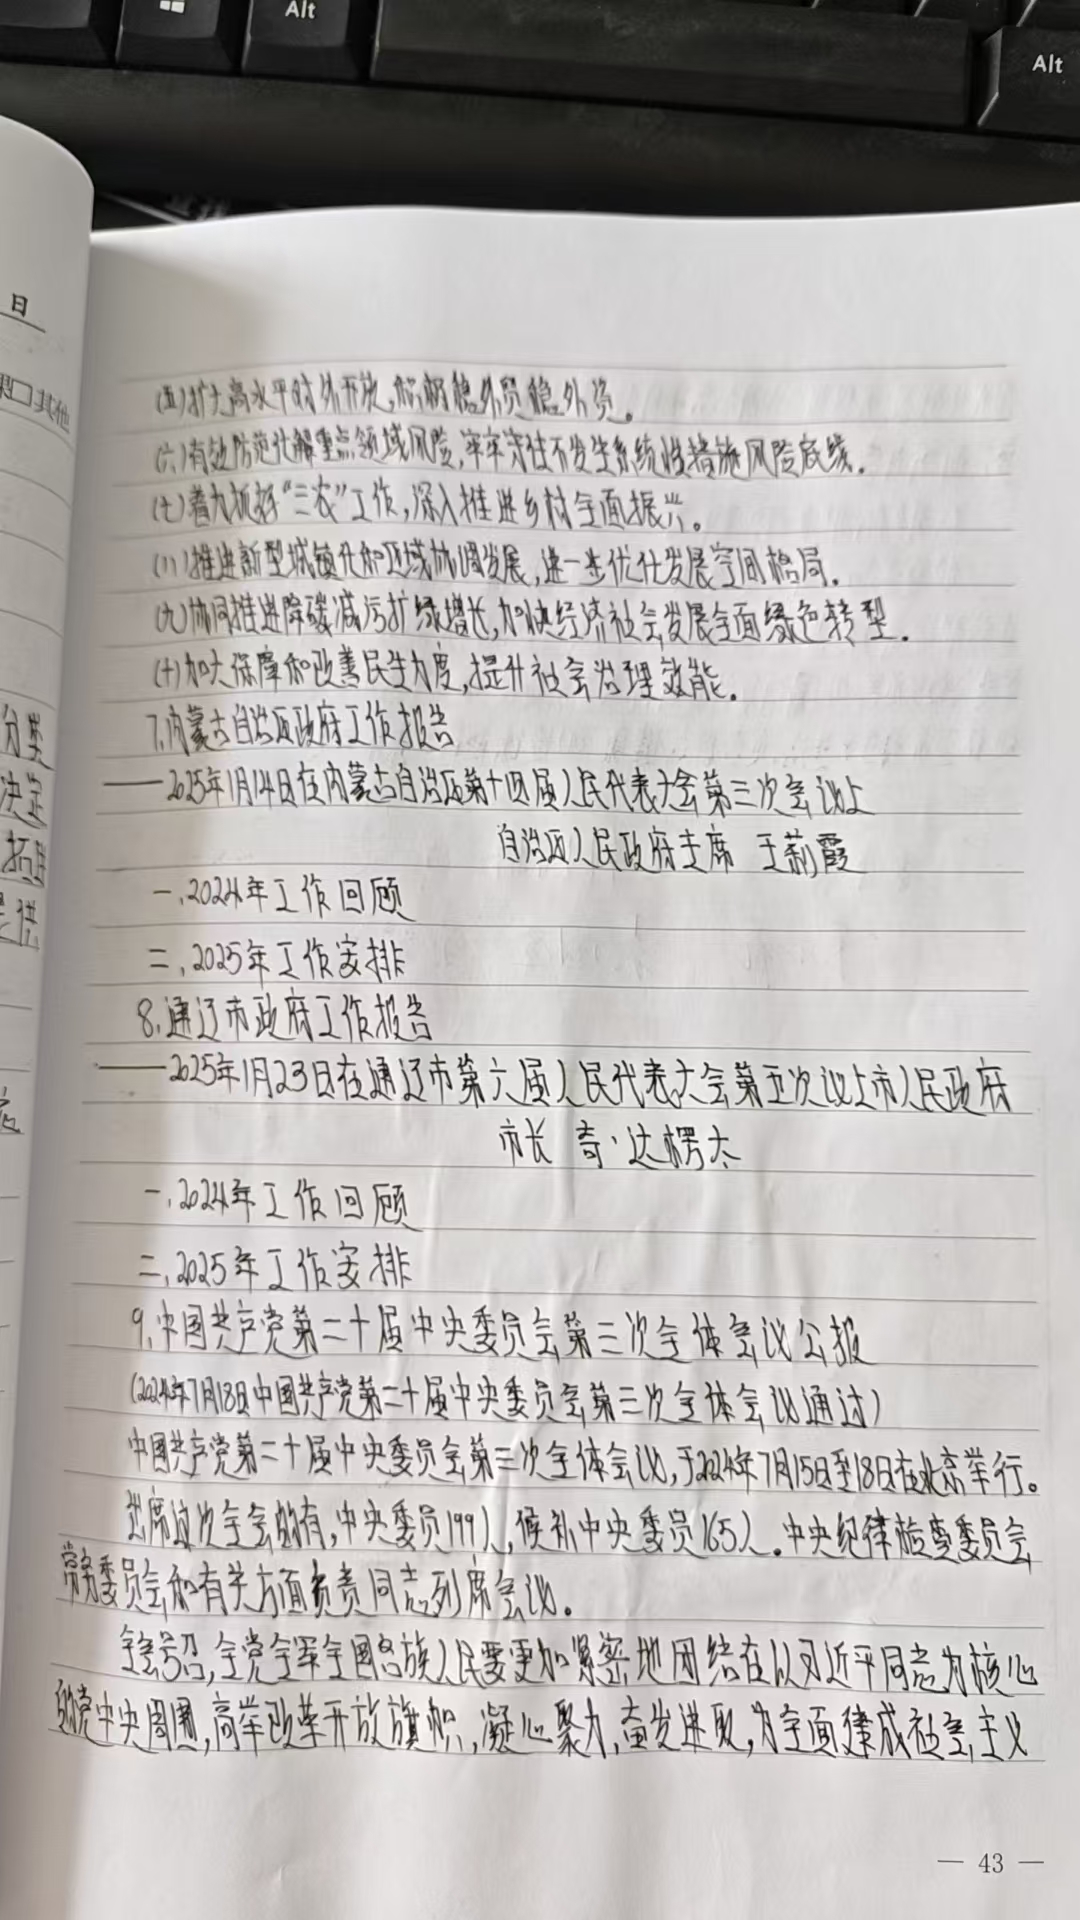 Alt
Alt
日
其他
分类
决定
提供
(五)扩大高水平对外开放,积极稳外贸稳外资。
(六)有效防范化解重点领域风险,牢牢守住不发生系统性措施风险底线。
(七)着力抓好“三农”工作,深入推进乡村全面振兴。
(八)推进新型城镇化和区域协调发展,进一步优化发展空间格局。
(九)协同推进降碳减污扩绿增长,加快经济社会发展全面绿色转型。
(十)加大保障和改善民生力度,提升社会治理效能。
7.内蒙古自治区政府工作报告
——2025年1月14日在内蒙古自治区第十四届人民代表大会第三次会议上
自治区人民政府主席 王莉霞
一.2024年工作回顾
二.2025年工作安排
8.通辽市政府工作报告
——2025年1月23日在通辽市第六届人民代表大会第五次议上市人民政府
市长 奇·达楞太
一.2024年工作回顾
二.2025年工作安排
9.中国共产党第二十届中央委员会第三次全体会议公报
(2024年7月18日中国共产党第二十届中央委员会第三次全体会议通过)
中国共产党第二十届中央委员会第三次全体会议,于2024年7月15日至18日在北京举行。
出席这次全会的有,中央委员199人,候补中央委员165人。中央纪律检查委员会
常务委员会和有关方面负责同志列席会议。
全会号召,全党全军全国各族人民要更加紧密地团结在以习近平同志为核心
的党中央周围,高举改革开放旗帜,凝心聚力,奋发进取,为全面建成社会主义
— 43 —